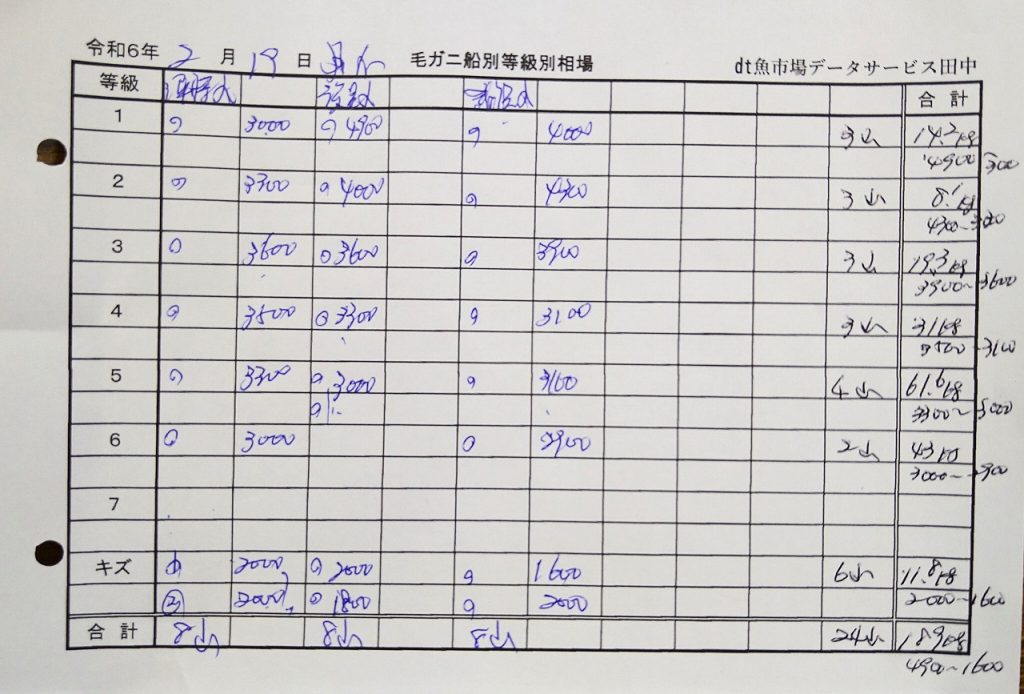 令和6年 2 月 19 日 毛ガニ船別等級別相場 dt魚市場データサービス田中
等級 合計
1 3000 4900 4000 3山 14.2kg
4900 3000
2 3300 4000 4300 3山 8.1kg
4300~3300
3 3600 3600 3900 3山 19.3kg
3900~3600
4 3500 3300 3100 3山 31kg
3500~3100
5 3300 3000 3100 4山 61.6kg
3300~3000
6 3000 2900 2山 43kg
3000~2900
7
キズ 2000 2000 1600 6山 11.8kg
2000 1800 2000 2000~1600
合計 8山 8山 8山 24山 189kg
4900~1600